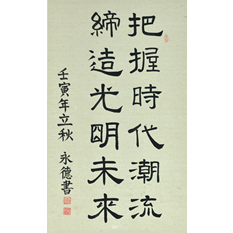 把握時代潮流
締造光明未來
壬寅年立秋 永德書